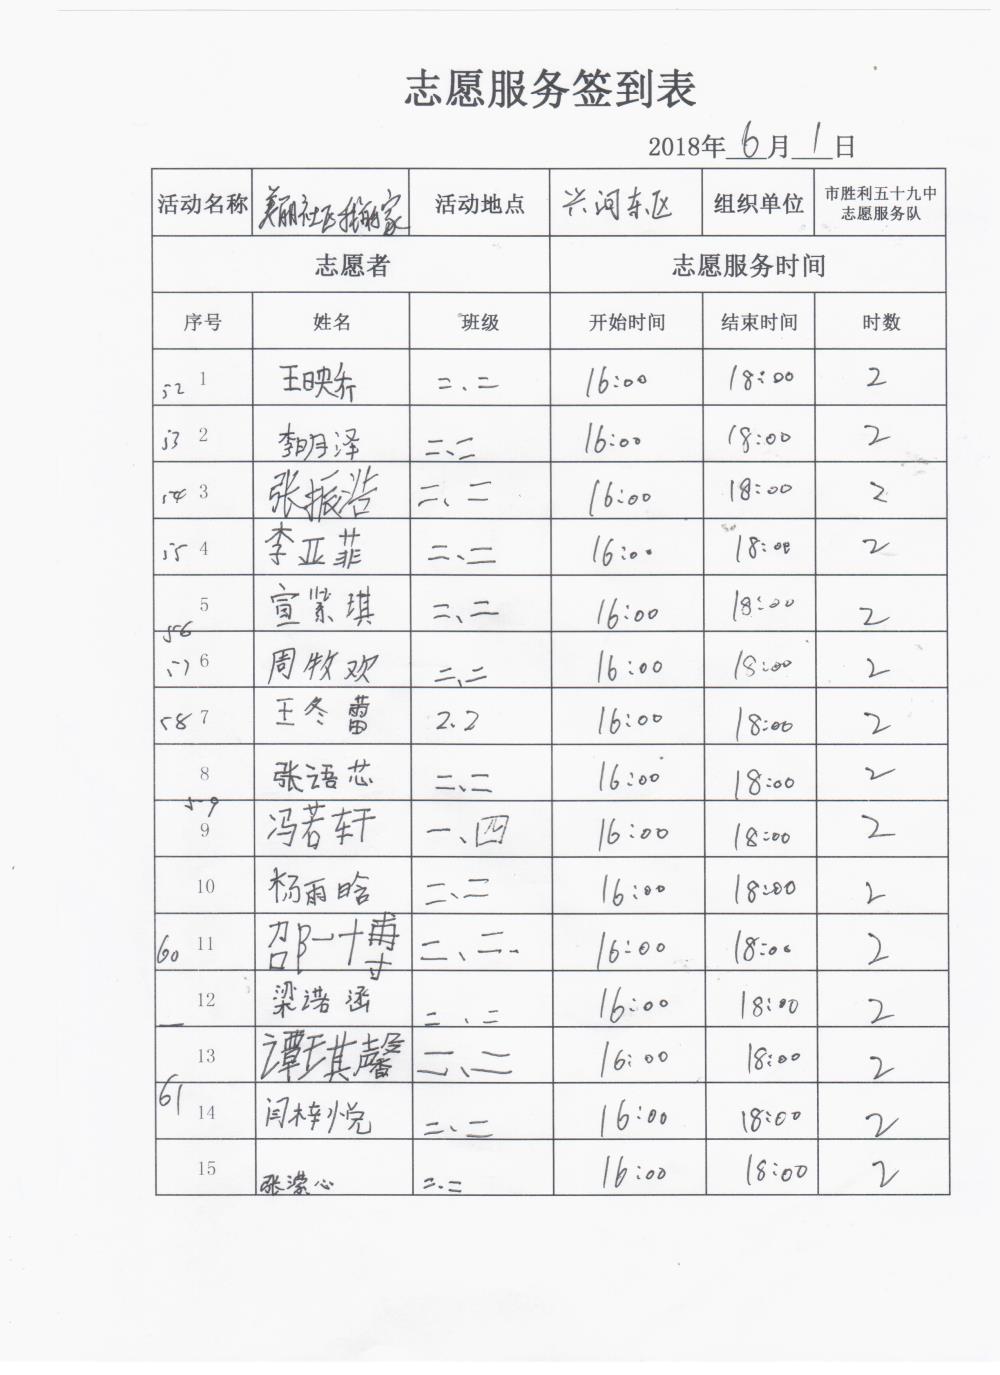 志愿服务签到表
2018年 6 月 1 日
活动名称 美丽社区我的家 活动地点 兴河东区 组织单位 市胜利五十九中志愿服务队
志愿者 志愿服务时间
序号 姓名 班级 开始时间 结束时间 时数
52 1 王映乔 二、二 16:00 18:00 2
53 2 李明泽 二、二 16:00 18:00 2
54 3 张振浩 二、二 16:00 18:00 2
55 4 李亚菲 二、二 16:00 18:00 2
56 5 宣紫琪 二、二 16:00 18:00 2
57 6 周牧欢 二、二 16:00 18:00 2
58 7 王冬蕾 2.2 16:00 18:00 2
8 张语芯 二、二 16:00 18:00 2
59 9 冯若轩 一、四 16:00 18:00 2
10 杨雨晗 二、二 16:00 18:00 2
60 11 邵一博 二、二 16:00 18:00 2
12 梁诺涵 二、二 16:00 18:00 2
13 谭琪馨 二、二 16:00 18:00 2
61 14 闫梓悦 二、二 16:00 18:00 2
15 张潆心 二.二 16:00 18:00 2